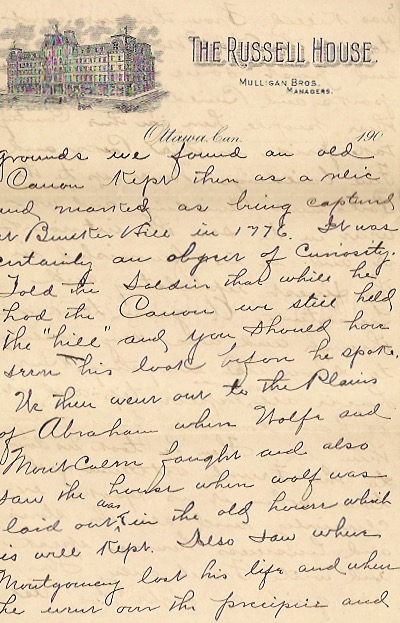 THE RUSSELL HOUSE.
MULLIGAN BROS.
MANAGERS.
Ottawa, Can. 190
grounds we found an old
Canon Kept then as a relic
and marked as being captured
at Bunker Hill in 1776. It was
certainly an object of Curiosity.
Told the Soldier that while he
had the Canon we still held
the "hill" and you should have
seen his look before he spoke.
We then went out to the Plains
of Abraham where Wolfe and
MontCalm fought and also
saw the house where wolf was
laid out was in the old house which
is well Kept. Also saw where
Montgomery lost his life and where
he went over the precipice and